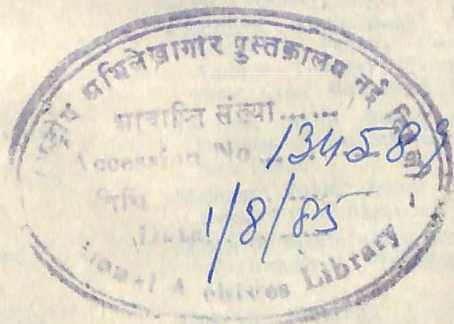 राष्ट्रीय अभिलेखागार पुस्तकालय नई
अवाप्ति संख्या......
Accession No. 134589
तिथि
1/8/85
Date
Archives Library